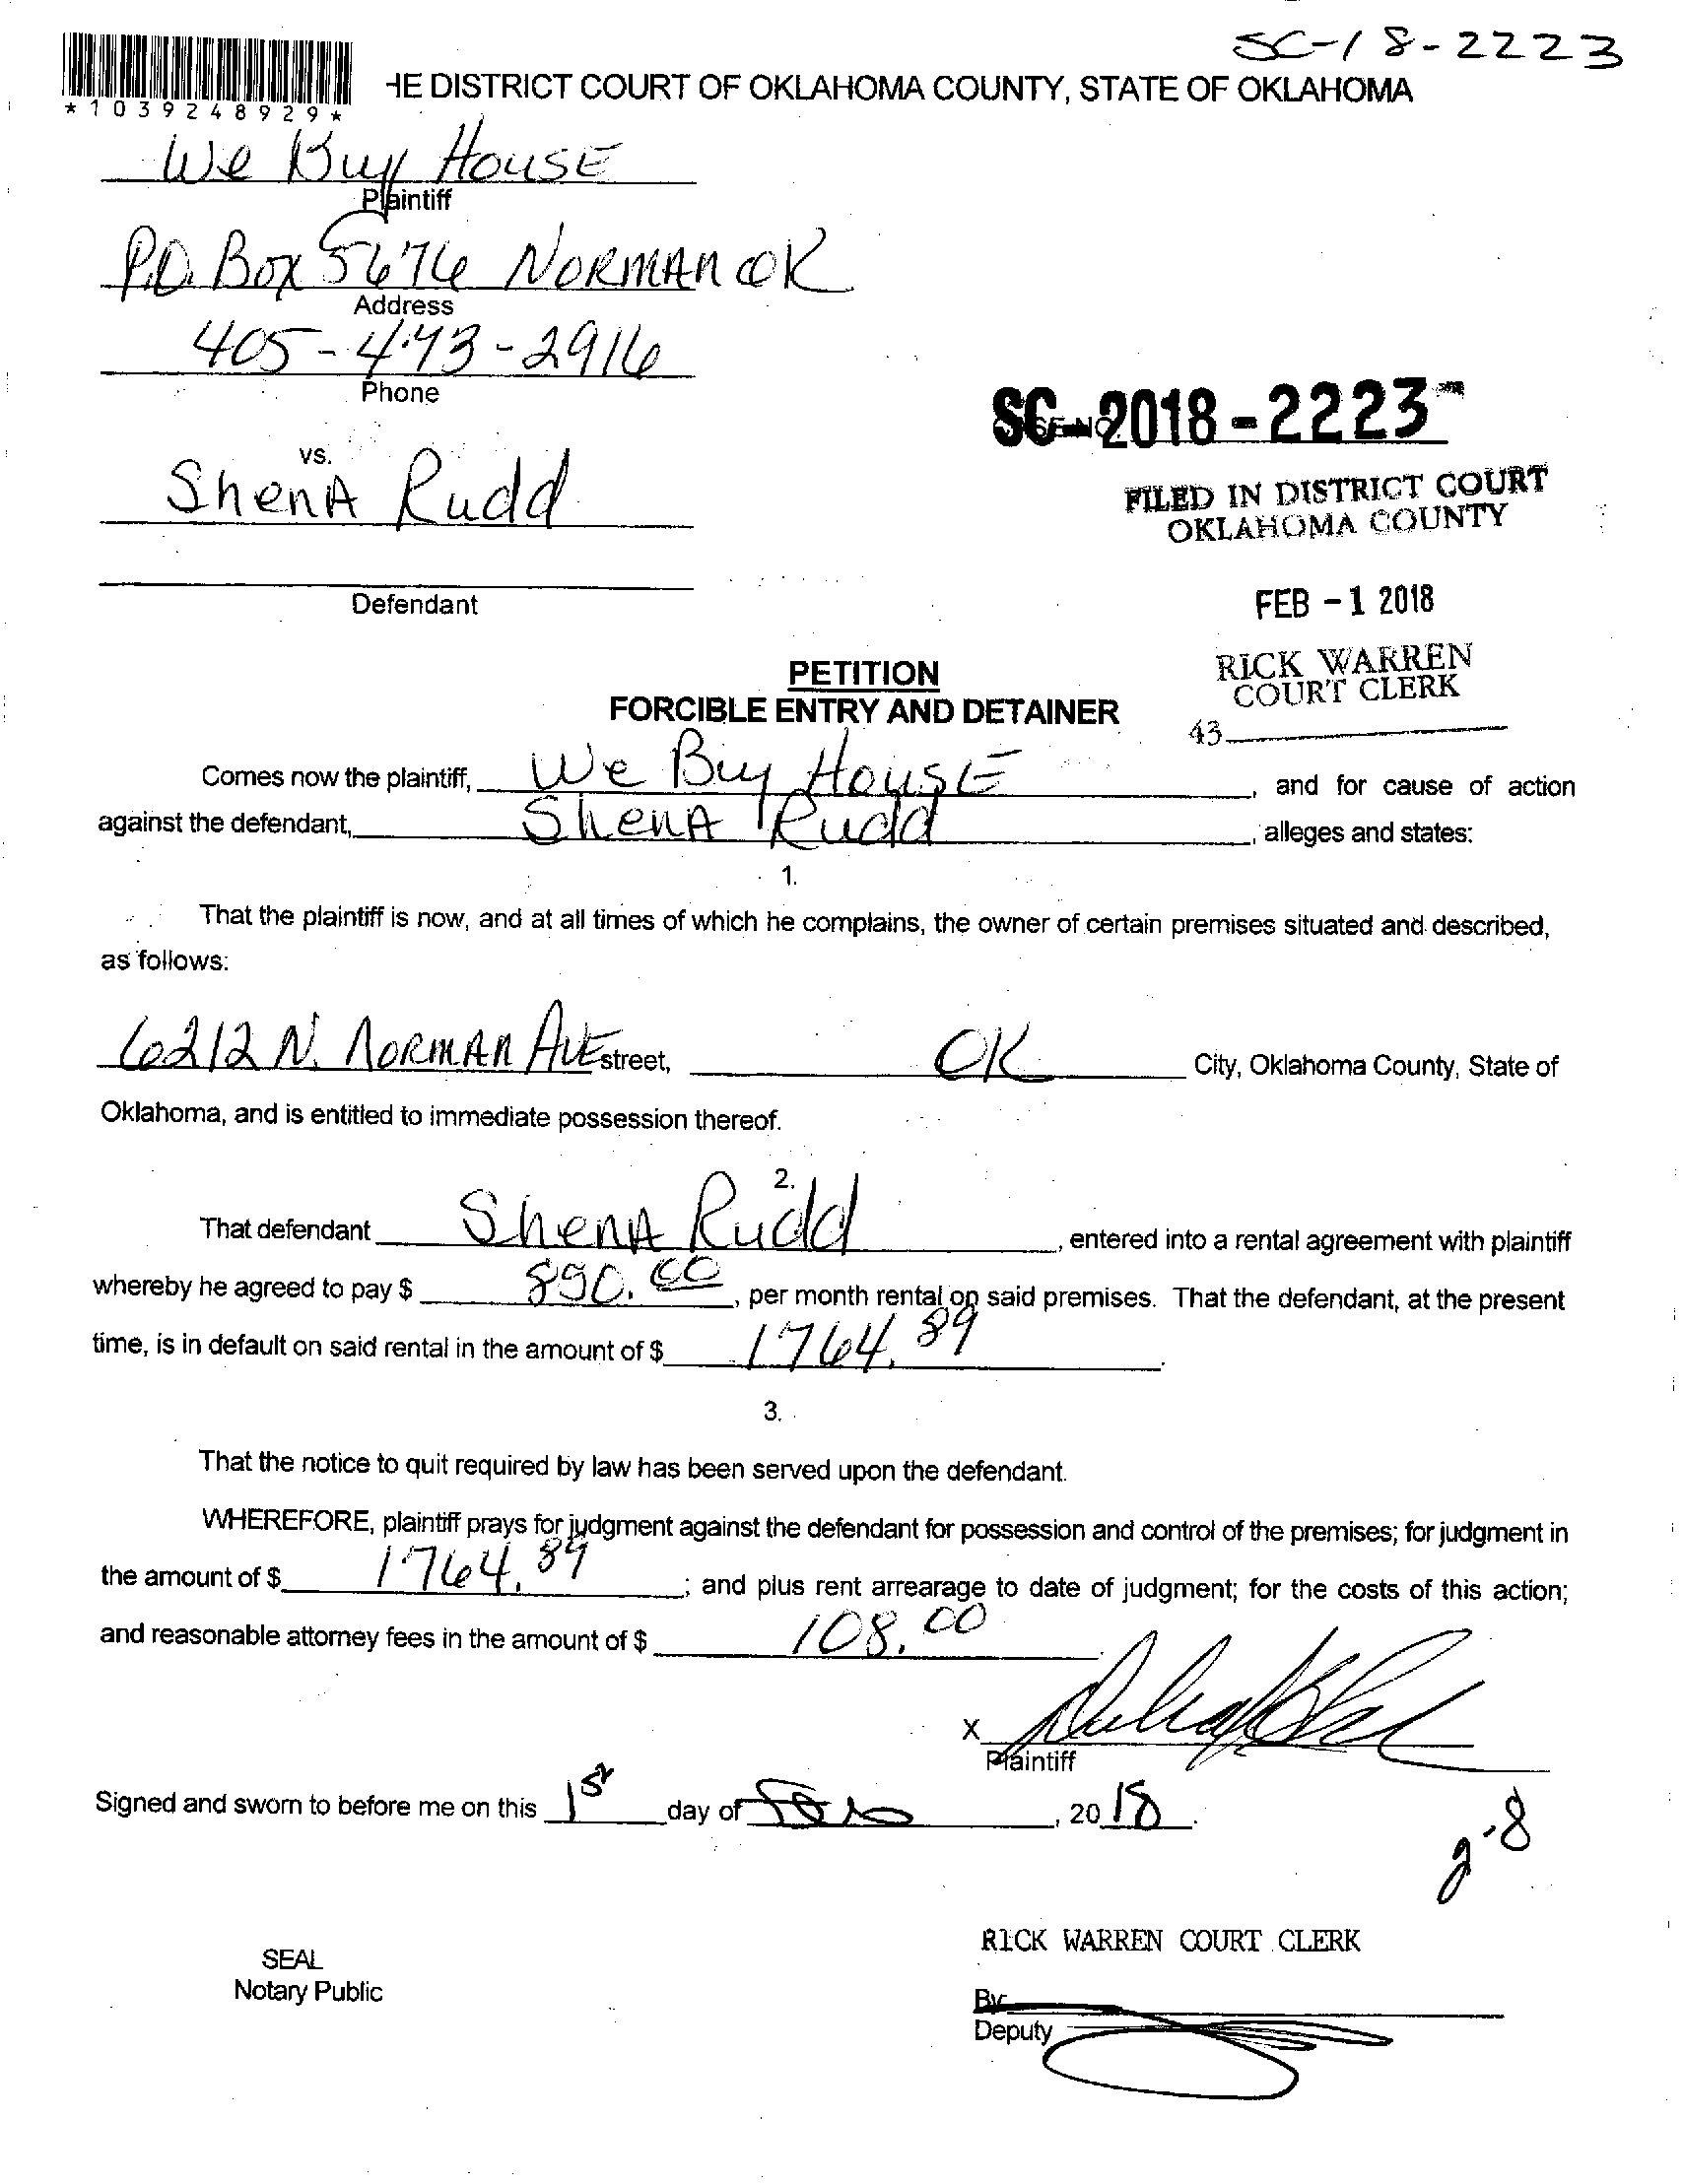 SC-18-2223
HE DISTRICT COURT OF OKLAHOMA COUNTY, STATE OF OKLAHOMA
*1039248929*
We Buy HOUSE
Plaintiff
P.O. Box 5676 NORMAN OK
Address
405-473-2916
Phone
SC-2018-2223
vs.
ShenA Rudd
FILED IN DISTRICT COURT
OKLAHOMA COUNTY
Defendant
FEB -1 2018
PETITION
RICK WARREN
COURT CLERK
FORCIBLE ENTRY AND DETAINER
43
Comes now the plaintiff, We Buy HOUSE, and for cause of action
against the defendant, ShenA Rudd, alleges and states:
1.
That the plaintiff is now, and at all times of which he complains, the owner of certain premises situated and described,
as follows:
6212 N. NORMAN AVE street, OK City, Oklahoma County, State of
Oklahoma, and is entitled to immediate possession thereof.
2.
That defendant ShenA Rudd, entered into a rental agreement with plaintiff
whereby he agreed to pay $ 890.00, per month rental on said premises. That the defendant, at the present
time, is in default on said rental in the amount of $ 1764.89.
3.
That the notice to quit required by law has been served upon the defendant.
WHEREFORE, plaintiff prays for judgment against the defendant for possession and control of the premises; for judgment in
the amount of $ 1764.89; and plus rent arrearage to date of judgment; for the costs of this action;
and reasonable attorney fees in the amount of $ 108.00
X
Plaintiff
Signed and sworn to before me on this 1st day of Feb, 2018.
2-8
RICK WARREN COURT CLERK
SEAL
Notary Public
By
Deputy